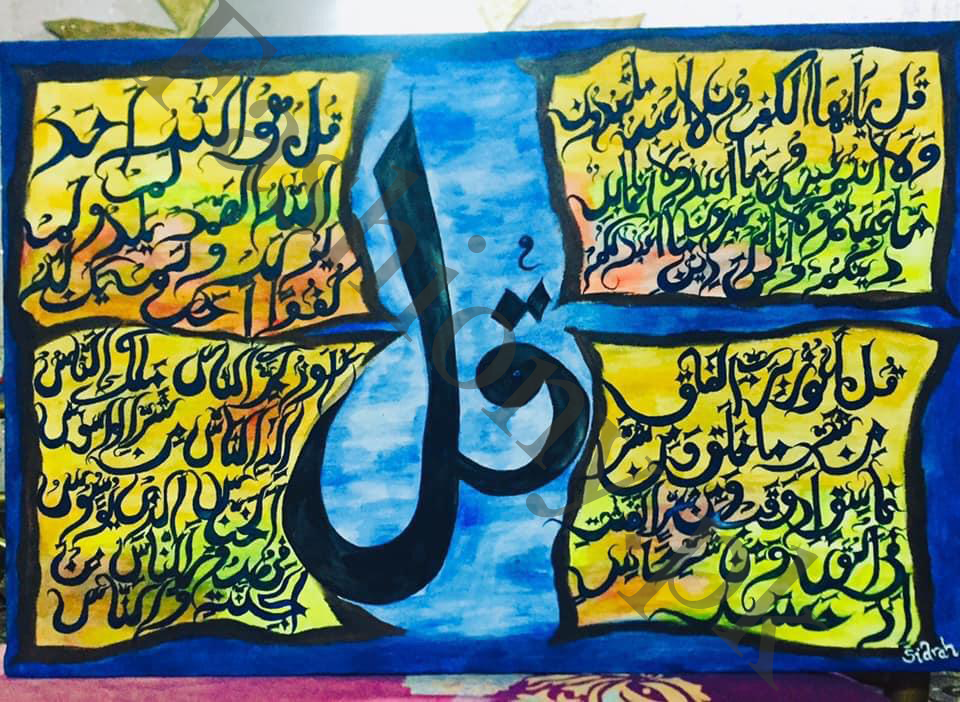 قل يأيها الكفرون لا أعبد ما تعبدون
ولا أنتم عبدون ما أعبد ولا أنا عابد
ما عبدتم ولا أنتم عبدون ما أعبد لكم
دينكم ولي دين
قل هو الله احد
الله الصمد لم يلد ولم
يولد ولم يكن له
كفوا احد
قل
قل أعوذ برب الفلق
من شر ما خلق ومن شر
غاسق إذا وقب ومن شر النفثت
في العقد ومن شر حاسد
إذا حسد
أعوذ برب الناس ملك الناس
اله الناس من شر الوسواس
الخناس الذي يوسوس
في صدور الناس من
الجنة والناس
Sidrah